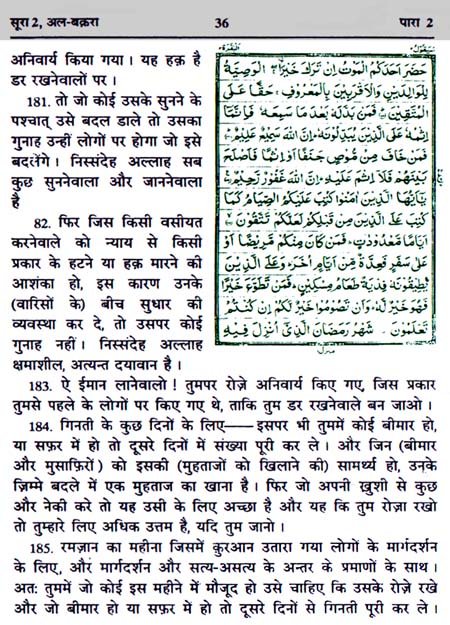 सूरा 2, अल-बक़रा 36 पारा 2
अनिवार्य किया गया। यह हक़ है
डर रखनेवालों पर।
181. तो जो कोई उसके सुनने के
पश्चात् उसे बदल डाले तो उसका
गुनाह उन्हीं लोगों पर होगा जो इसे
बदलेंगे। निस्संदेह अल्लाह सब
कुछ सुननेवाला और जाननेवाला
है
82. फिर जिस किसी वसीयत
करनेवाले को न्याय से किसी
प्रकार के हटने या हक़ मारने की
आशंका हो, इस कारण उनके
(वारिसों के) बीच सुधार की
व्यवस्था कर दे, तो उसपर कोई
गुनाह नहीं। निस्संदेह अल्लाह
क्षमाशील, अत्यन्त दयावान है।
حَضَرَ اَحَدَكُمُ الْمَوْتُ اِنْ تَرَكَ خَيْرًا ۖ الْوَصِيَّةُ
لِلْوَالِدَيْنِ وَالْاَقْرَبِيْنَ بِالْمَعْرُوْفِ ۚ حَقًّا عَلَى
الْمُتَّقِيْنَ ۝ فَمَنْ بَدَّلَهٗ بَعْدَ مَا سَمِعَهٗ فَاِنَّمَا
اِثْمُهٗ عَلَى الَّذِيْنَ يُبَدِّلُوْنَهٗ ۚ اِنَّ اللهَ سَمِيْعٌ عَلِيْمٌ ۝
فَمَنْ خَافَ مِنْ مُّوْصٍ جَنَفًا اَوْ اِثْمًا فَاَصْلَحَ
بَيْنَهُمْ فَلَاۤ اِثْمَ عَلَيْهِ ۚ اِنَّ اللهَ غَفُوْرٌ رَّحِيْمٌ ۝
يٰۤاَيُّهَا الَّذِيْنَ اٰمَنُوْا كُتِبَ عَلَيْكُمُ الصِّيَامُ كَمَا
كُتِبَ عَلَى الَّذِيْنَ مِنْ قَبْلِكُمْ لَعَلَّكُمْ تَتَّقُوْنَ ۝
اَيَّامًا مَّعْدُوْدٰتٍ ۚ فَمَنْ كَانَ مِنْكُمْ مَّرِيْضًا اَوْ
عَلٰى سَفَرٍ فَعِدَّةٌ مِّنْ اَيَّامٍ اُخَرَ ۚ وَعَلَى الَّذِيْنَ
يُطِيْقُوْنَهٗ فِدْيَةٌ طَعَامُ مِسْكِيْنٍ ۚ فَمَنْ تَطَوَّعَ خَيْرًا
فَهُوَ خَيْرٌ لَّهٗ ۚ وَاَنْ تَصُوْمُوْا خَيْرٌ لَّكُمْ اِنْ كُنْتُمْ
تَعْلَمُوْنَ ۝ شَهْرُ رَمَضَانَ الَّذِيْۤ اُنْزِلَ فِيْهِ
183. ऐ ईमान लानेवालो! तुमपर रोज़े अनिवार्य किए गए, जिस प्रकार
तुमसे पहले के लोगों पर किए गए थे, ताकि तुम डर रखनेवाले बन जाओ।
184. गिनती के कुछ दिनों के लिए—— इसपर भी तुममें कोई बीमार हो,
या सफ़र में हो तो दूसरे दिनों में संख्या पूरी कर ले। और जिन (बीमार
और मुसाफ़िरों) को इसकी (मुहताजों को खिलाने की) सामर्थ्य हो, उनके
ज़िम्मे बदले में एक मुहताज का खाना है। फिर जो अपनी ख़ुशी से कुछ
और नेकी करे तो यह उसी के लिए अच्छा है और यह कि तुम रोज़ा रखो
तो तुम्हारे लिए अधिक उत्तम है, यदि तुम जानो।
185. रमज़ान का महीना जिसमें क़ुरआन उतारा गया लोगों के मार्गदर्शन
के लिए, और मार्गदर्शन और सत्य-असत्य के अन्तर के प्रमाणों के साथ।
अतः तुममें जो कोई इस महीने में मौजूद हो उसे चाहिए कि उसके रोज़े रखे
और जो बीमार हो या सफ़र में हो तो दूसरे दिनों से गिनती पूरी कर ले।